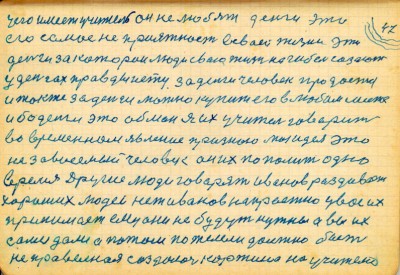 чего имеет учитель он не любят денги это
его самое не приятност в своей жизни эти
денги за которои люди свою жизнь
у денгах правды нету. за денги человек продаста
и также за денги можно купит его в любом месте
ибо денги это обман я их учител говорит
во временном явление признаю
не зависемый человек он их попомнит одно
время другие люди говорят Иванов раздивает
хароших людей нет Иванов напрасно у своих
принимает ему они не будут нужны а вы их
сами дали а потом потомли должно быт
не правелная создалос картина на учителю
47